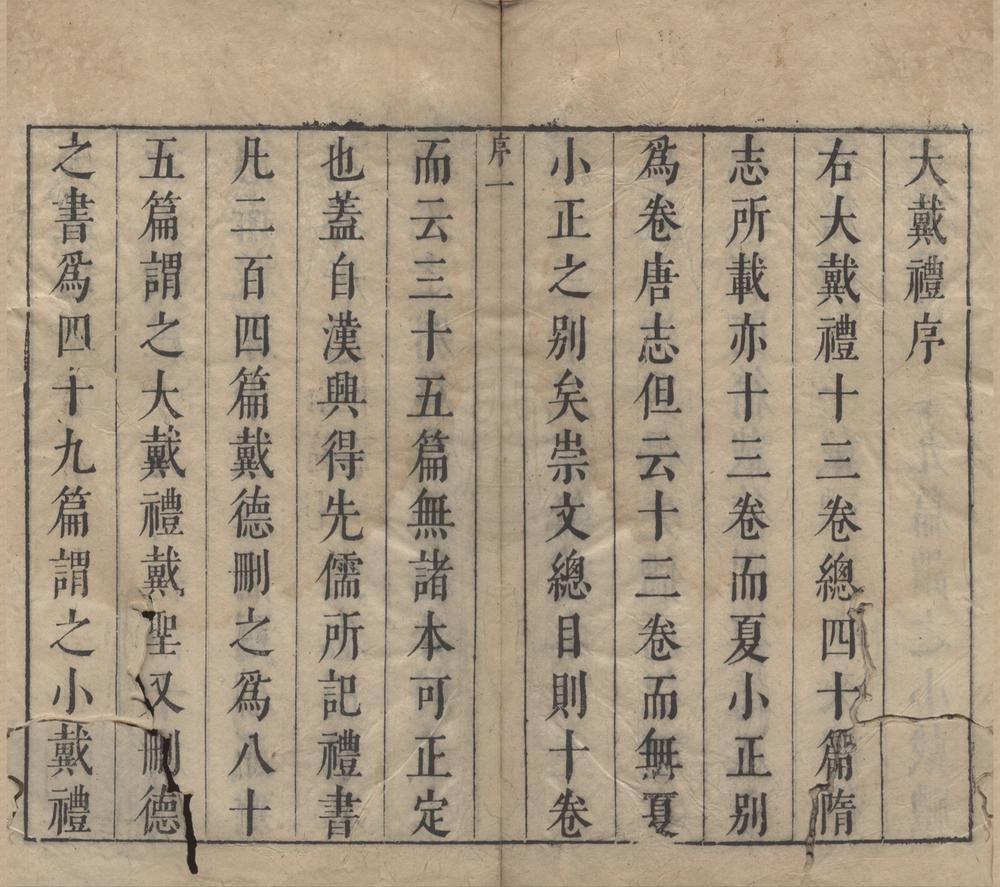 大戴禮序
右大戴禮十三卷總四十篇隋
志所載亦十三卷而夏小正别
爲卷唐志但云十三卷而無夏
小正之别矣崇文總目則十卷
序一
而云三十五篇無諸本可正定
也蓋自漢興得先儒所記禮書
凡二百四篇戴德刪之爲八十
五篇謂之大戴禮戴聖又刪德
之書爲四十九篇謂之小戴禮